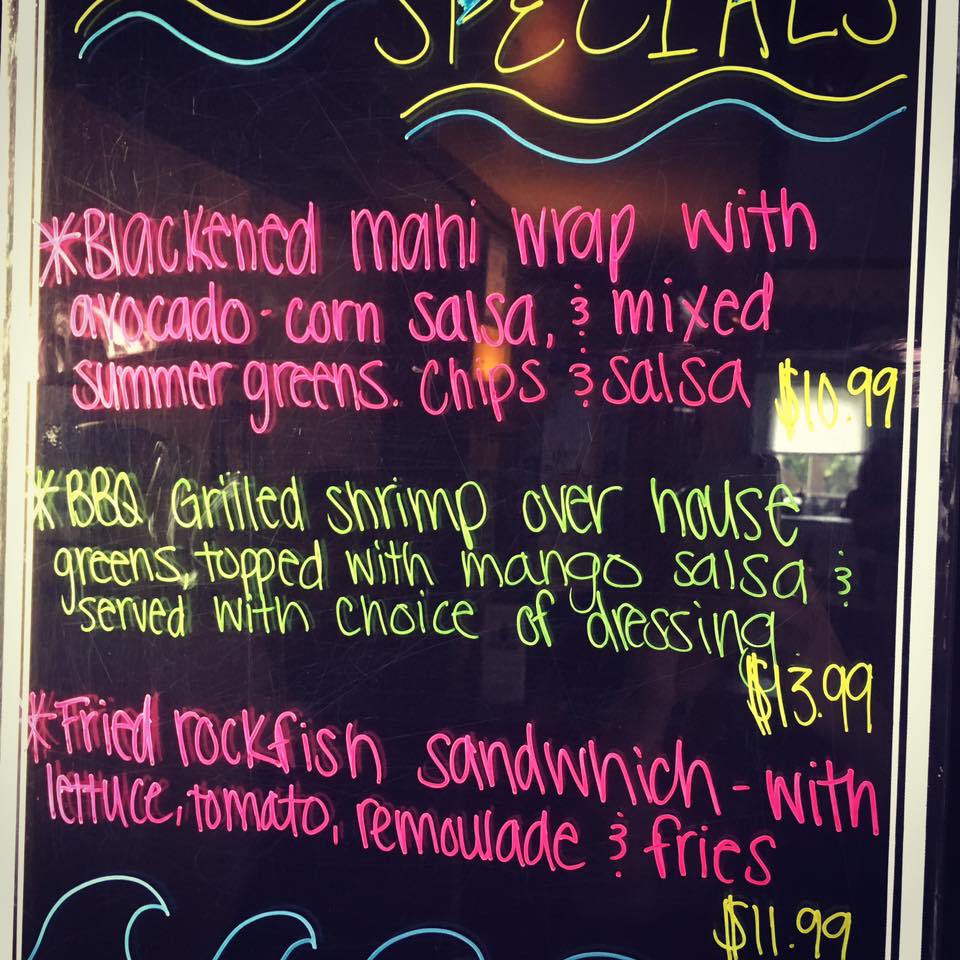 SPECIALS
*Blackened mahi wrap with
avocado-corn salsa, & mixed
summer greens. Chips & salsa $10.99
*BBQ Grilled shrimp over house
greens, topped with mango salsa &
served with choice of dressing
$13.99
*Fried rockfish sandwhich - with
lettuce, tomato, remoulade & fries
$11.99